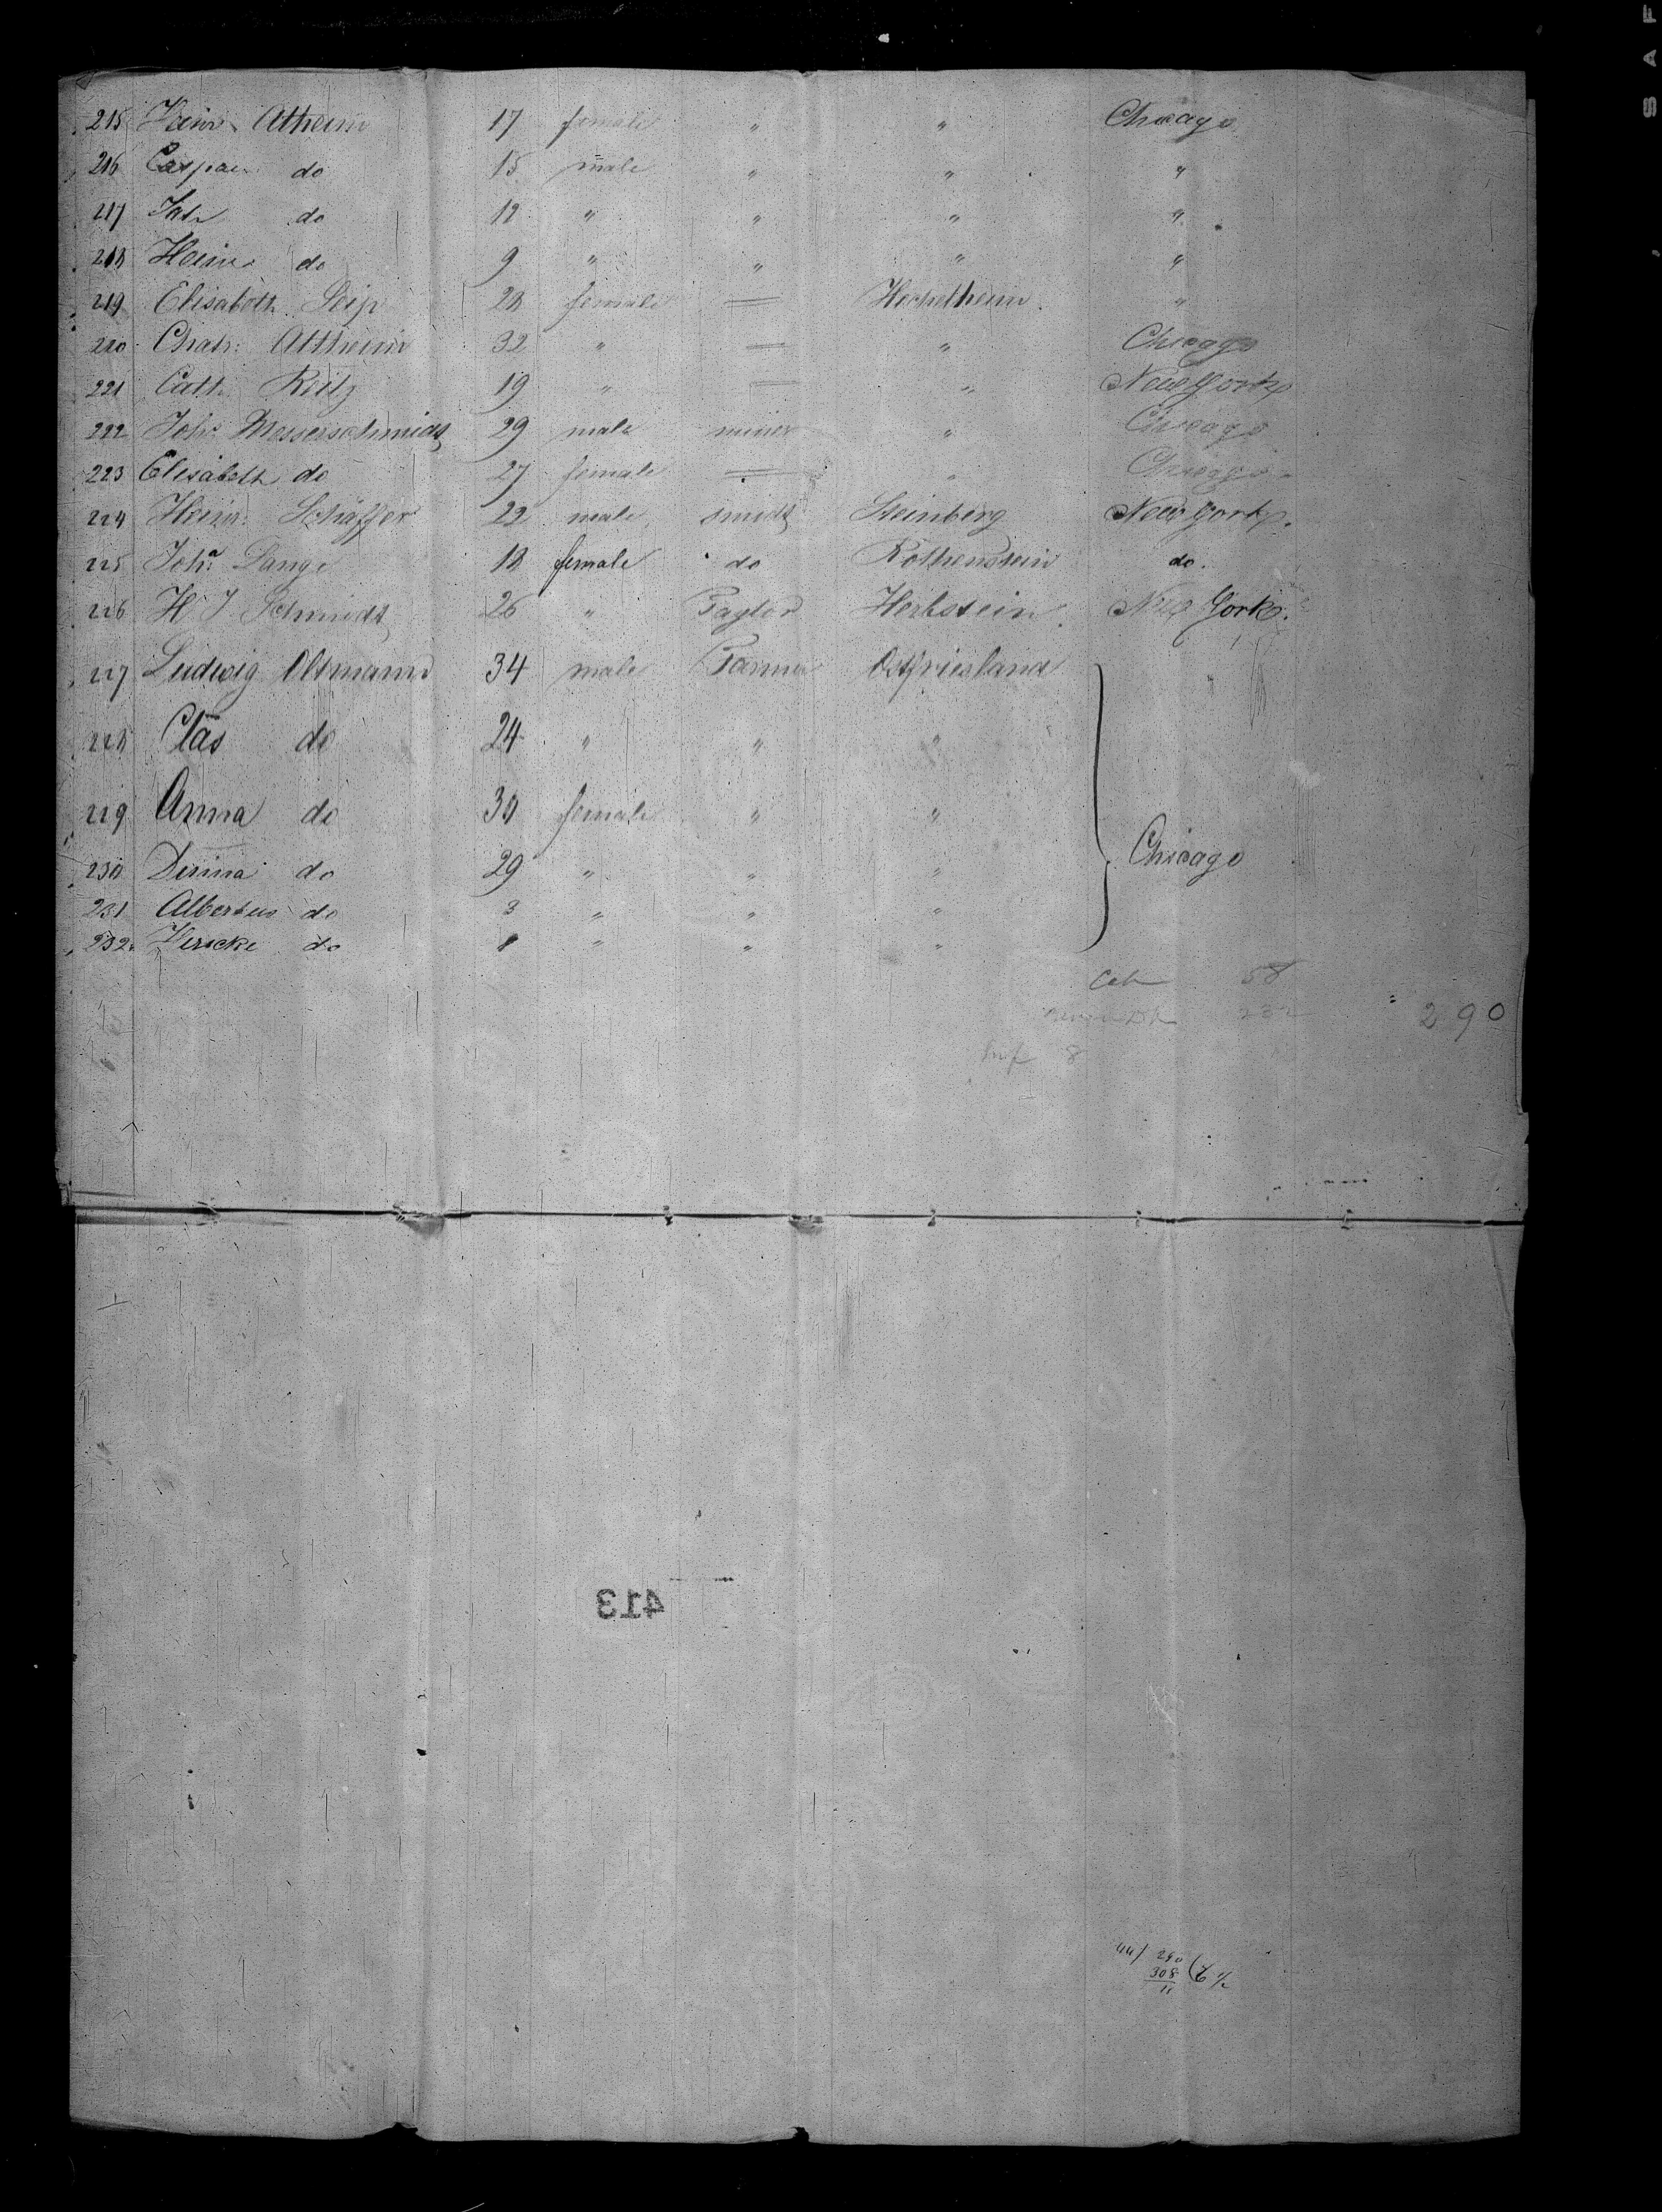 215 Heinr. Altheim 17 female " " Chicago
216 Caspar do 15 male " " "
217 Joh. do 12 " " " "
218 Heinr. do 9 " " " "
219 Elisabeth Seip 28 female — Herbstheim "
220 Chath: Altheim 32 " — " Chicago
221 Cath. Reitz 19 " — " New York
222 Joh. Messerschmidt 29 male miner " Chicago
223 Elisabeth do 27 female — " Chicago
224 Heinr: Schäffer 22 male smidt Steinberg New York.
225 Joh: Lange 18 female do Rothenstein do.
226 H J Schmidt 26 " Taylor Herbstein New York.
227 Ludwig Oltmann 34 male Farmer Ostfriesland
228 Clas do 24 " " "
229 Anna do 30 female " "
230 do 29 " " " Chicago
231 Albertus do 3 " " "
232 do 1 " " "
Cab 58
232 = 290
Inf 8
413
44/ 290 (6 1/2
308
11
S A F